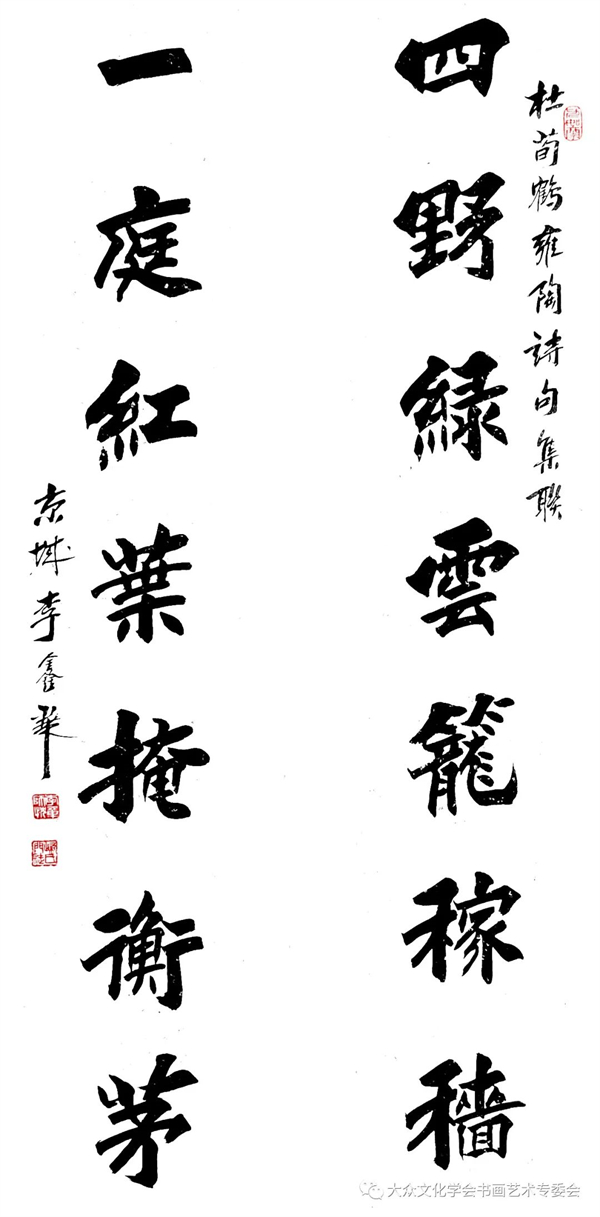 杜荀鶴雍陶詩句集聯
四野緑雲籠稼穡
一庭紅葉掩衡茅
京城李鑫華
大众文化学会书画艺术专委会